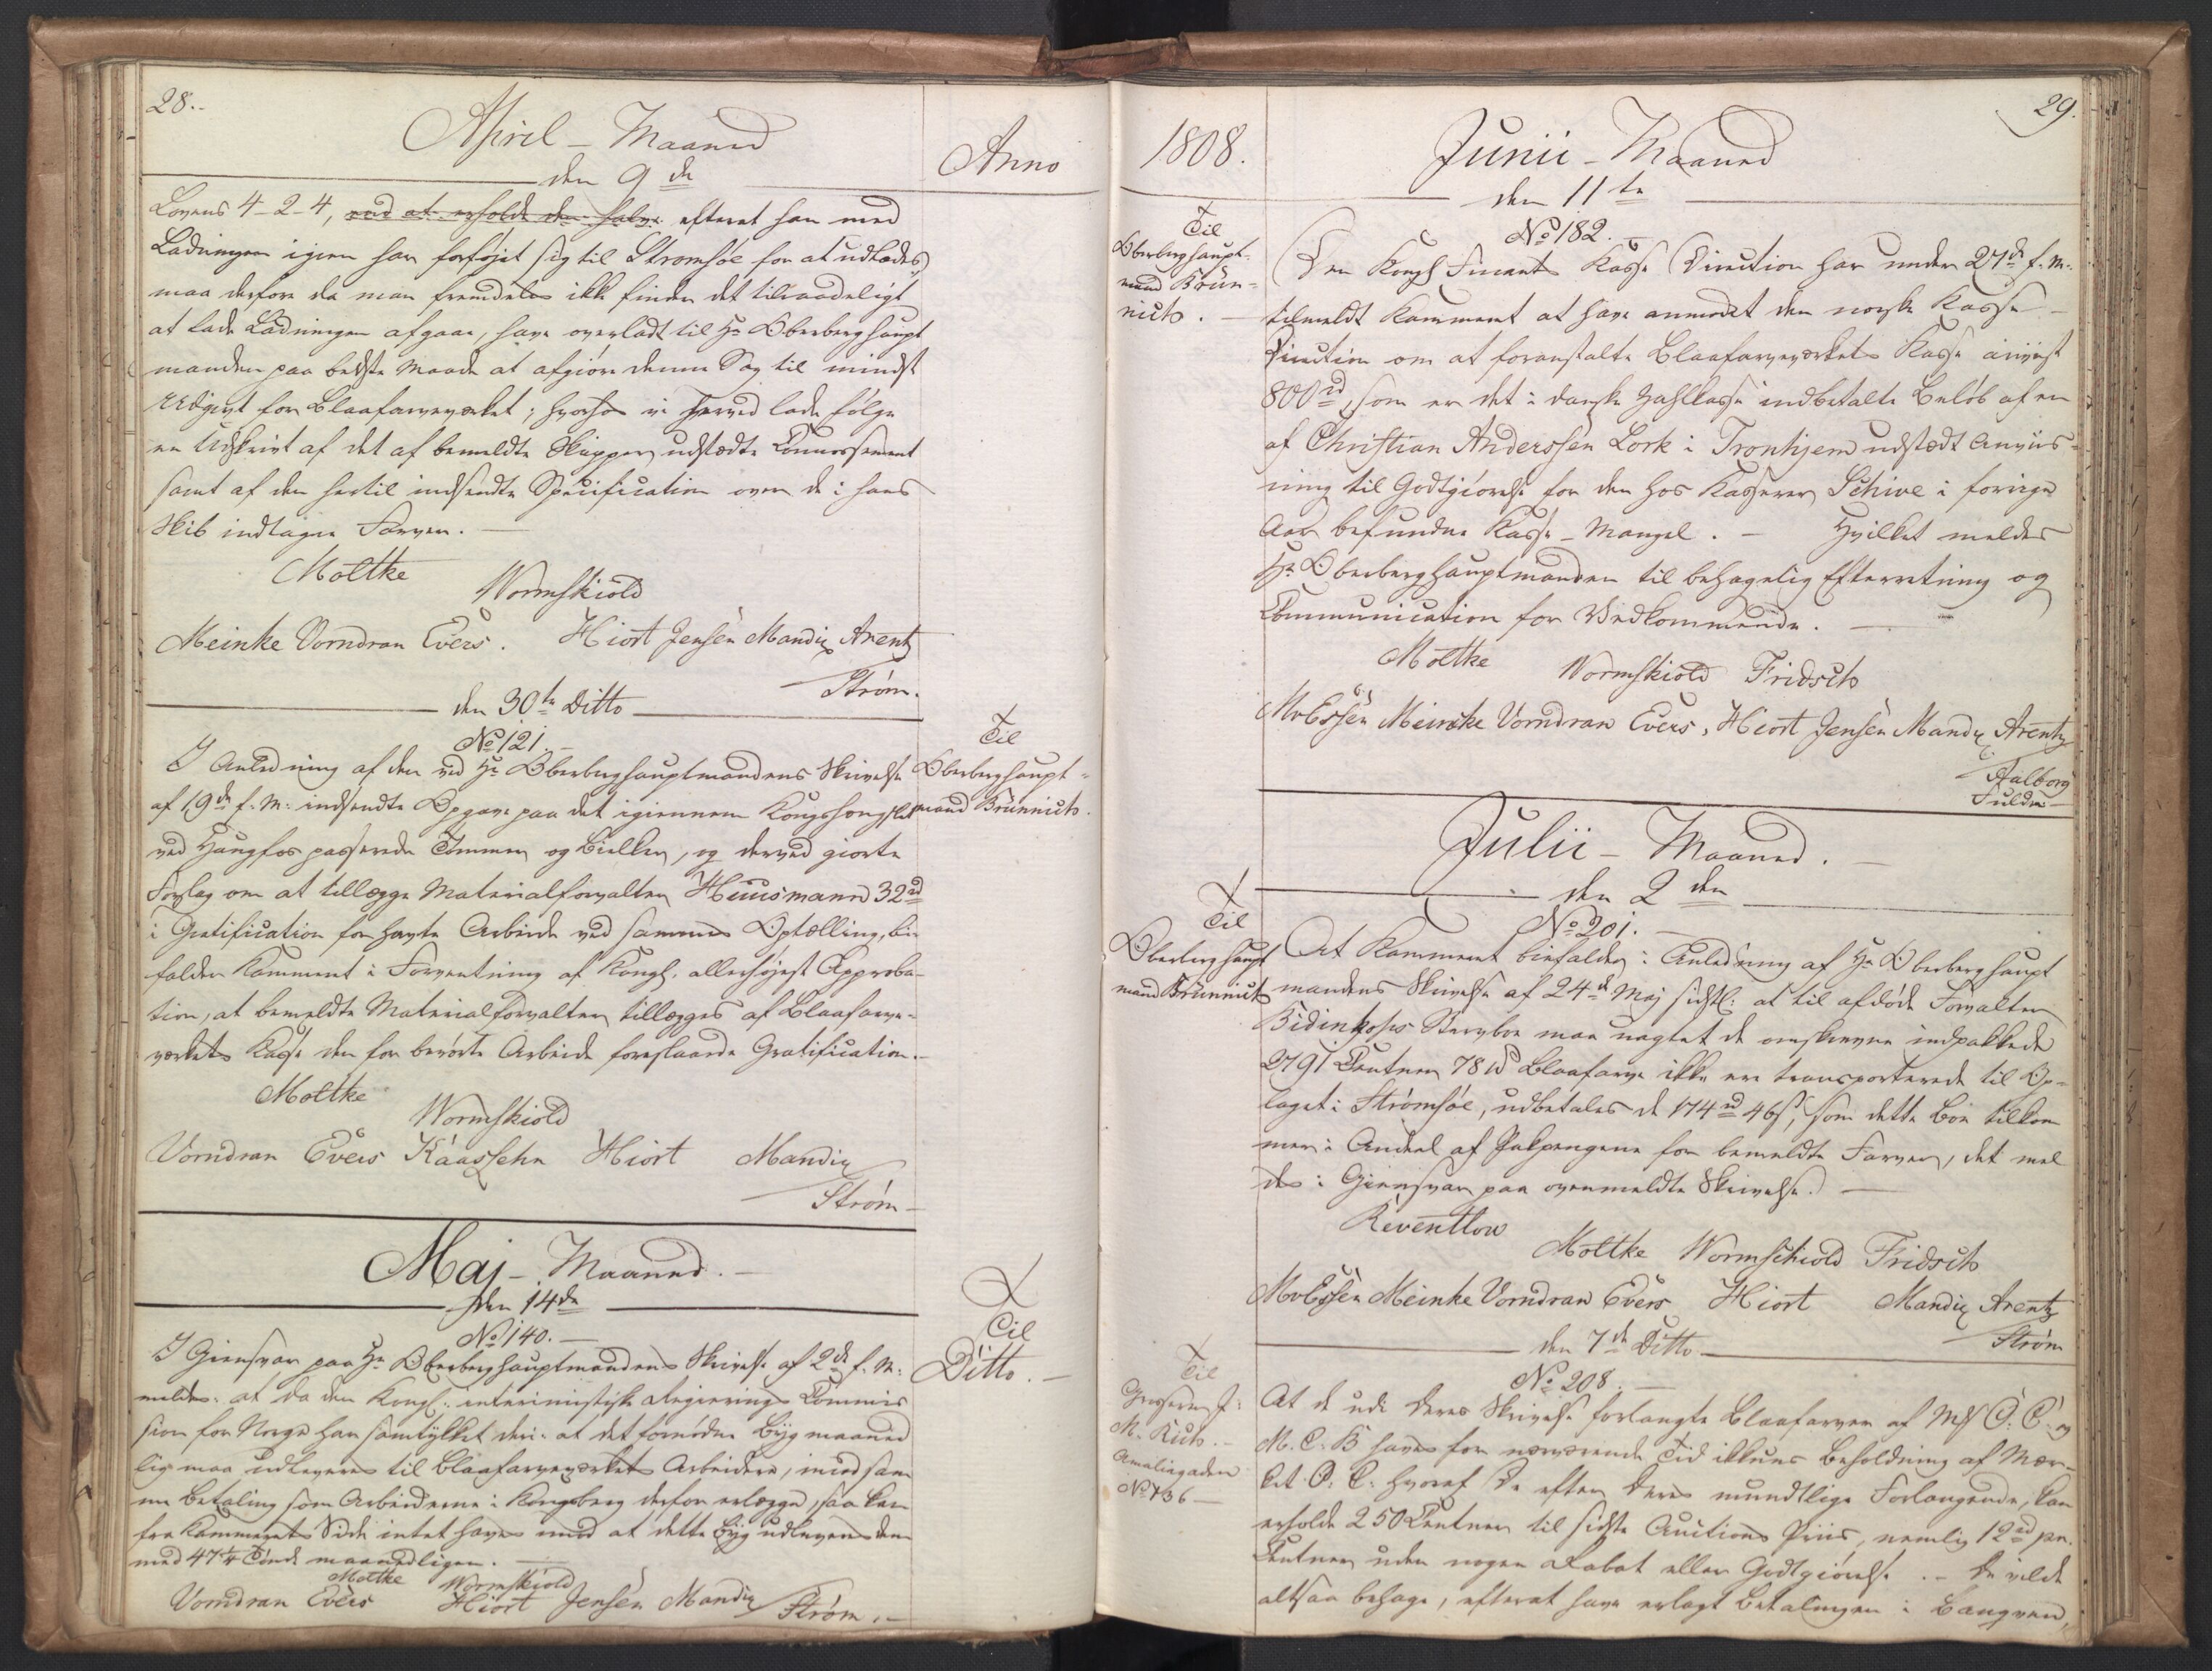 28.
April - Maaned
Anno
den 9de
Lovens 4-2-4, end at erholde den halve efterat han med
Ladningen igien har forføjet sig til Strømsøe for at udlades,
maa derfore da man fremdeles ikke finder det tilraadeligt
at lade Ladningen afgaae, have overladt til Hr Oberberghaupt
manden paa bedste Maade at afgiøre denne Sag til mindst
Udgivt for Blaafarveværket; hvorhos vi herved lade følge
en Udskrivt af det af bemeldte Skipper udstædte Connossement
samt af den hertil indsendte Specification over de i hans
Skib indtagne Farver.
Moltke
Wormskiold
Meinke Vorndran Evers. Hiort Jensen Mandix Arentz
Strøm.
den 30te Ditto
No 121.
Til
Oberberghaupt-
mand Brünnich.
I Anledning af den ved Hr Oberberghauptmandens Skrivelse
af 19de f. M. indsendte Opgave paa det igiennem Kongshong
ved Haugfos passerede Tømmer og Bielker, og derved giorte
Forslag om at tillægge Materialforvalter Huusmann 32rd
i Gratification for havte Arbeide ved sammes Optælling, bi-
falder Kammeret i Forventning af Kongl. allerhøjest Approba-
tion, at bemeldte Materialforvalter tillægges af Blaafarve-
værkets Kasse den for berørte Arbeide foreslaaede Gratification.
Moltke
Wormskiold
Vorndran Evers Kaassehn Hiort Mandix
Strøm
Maj - Maaned.
den 14de
No 140.
Til
Ditto.
I Giensvar paa Hr Oberberghauptmandens Skrivelse af 2de f. M.
meldes: at da den Kongl. interimistiske Regierings Commis
sion for Norge har samtykket deri at det fornødne Byg maaned
lig maa udleveres til Blaafarveværkets Arbeidere, imod sam
me Betaling som Arbeiderne i Kongsberg derfor erlægge, saa kan
fra Kammerets Side intet haves imod at dette Byg udleveres dem
med 47 1/4 Tønde maanedligen.
Moltke Wormskiold
Vorndran Evers Hiort Jensen Mandix Strøm.
1808.
29.
Junii - Maaned
den 11te
No 182.
Til
Oberberghaupt-
mand Brün-
nich.
Den Kongl Finants Kasse Direction har under 27de f. M.
tilmeldt Kammeret at have anmodet den norske Kasse
Direction om at foranstalte Blaafarveværkets Kasse anviist
800rd, som er det i danske Zahlkasse indbetalte Beløb af en
af Christian Anderssen Lork i Tronhjem udstædt Anviis-
ning til Godtgiørelse for den hos Kasserer Schive i forrige
Aar befundne Kasse-Mangel. - Hvilket meldes
Hr Oberberghauptmanden til behagelig Efterretning og
Communication for Vedkommende.
Moltke Wormskiold Fridsch
MvEssen Meincke Vorndran Evers, Hiort Jensen Mandix Arentz
Aalborg
Fuldm:
Julii - Maaned.
den 2den
No 201.
Til
Oberberghaupt
mand Brünnich
At Kammeret bifalder i Anledning af Hr Oberberghaupt
mandens Skrivelse af 24de Maj sidstl. at til afdøde Forvalter
Bidinkofs Stervboe maa uagtet de omskrevne indpakkede
2791 Centner 78 lb Blaafarve ikke ere transporterede til Op-
laget i Strømsøe, udbetales de 174rd 46s, som dette Boe tilkom
mer i Andeel af Pakpengene for bemeldte Farver, det mel
des i Giensvar paa ovenmeldte Skrivelse.
Reventlow
Moltke Wormschiold Fridsch
MvEssen Meinke Vorndran Evers Hiort Mandix Arentz
Strøm
den 7de Ditto
No 208.
Til
Grosserer J:
M. Rich.
Amaliegaden
No 136
At de udi Deres Skrivelse forlangte Blaafarver af Mk O. C. og
M. C. B haves for nærværende Tid ikkuns Beholdning af Mær-
ket O. C. hvoraf De efter Deres mundtlige Forlangende, kan
erholde 250 Centner til sidste Auctions Priis, nemlig 12rd pr.
Centner uden nogen Rabat eller Godtgiørelse. - De vilde
altsaa behage, efterat have erlagt Betalingen i Banquen,